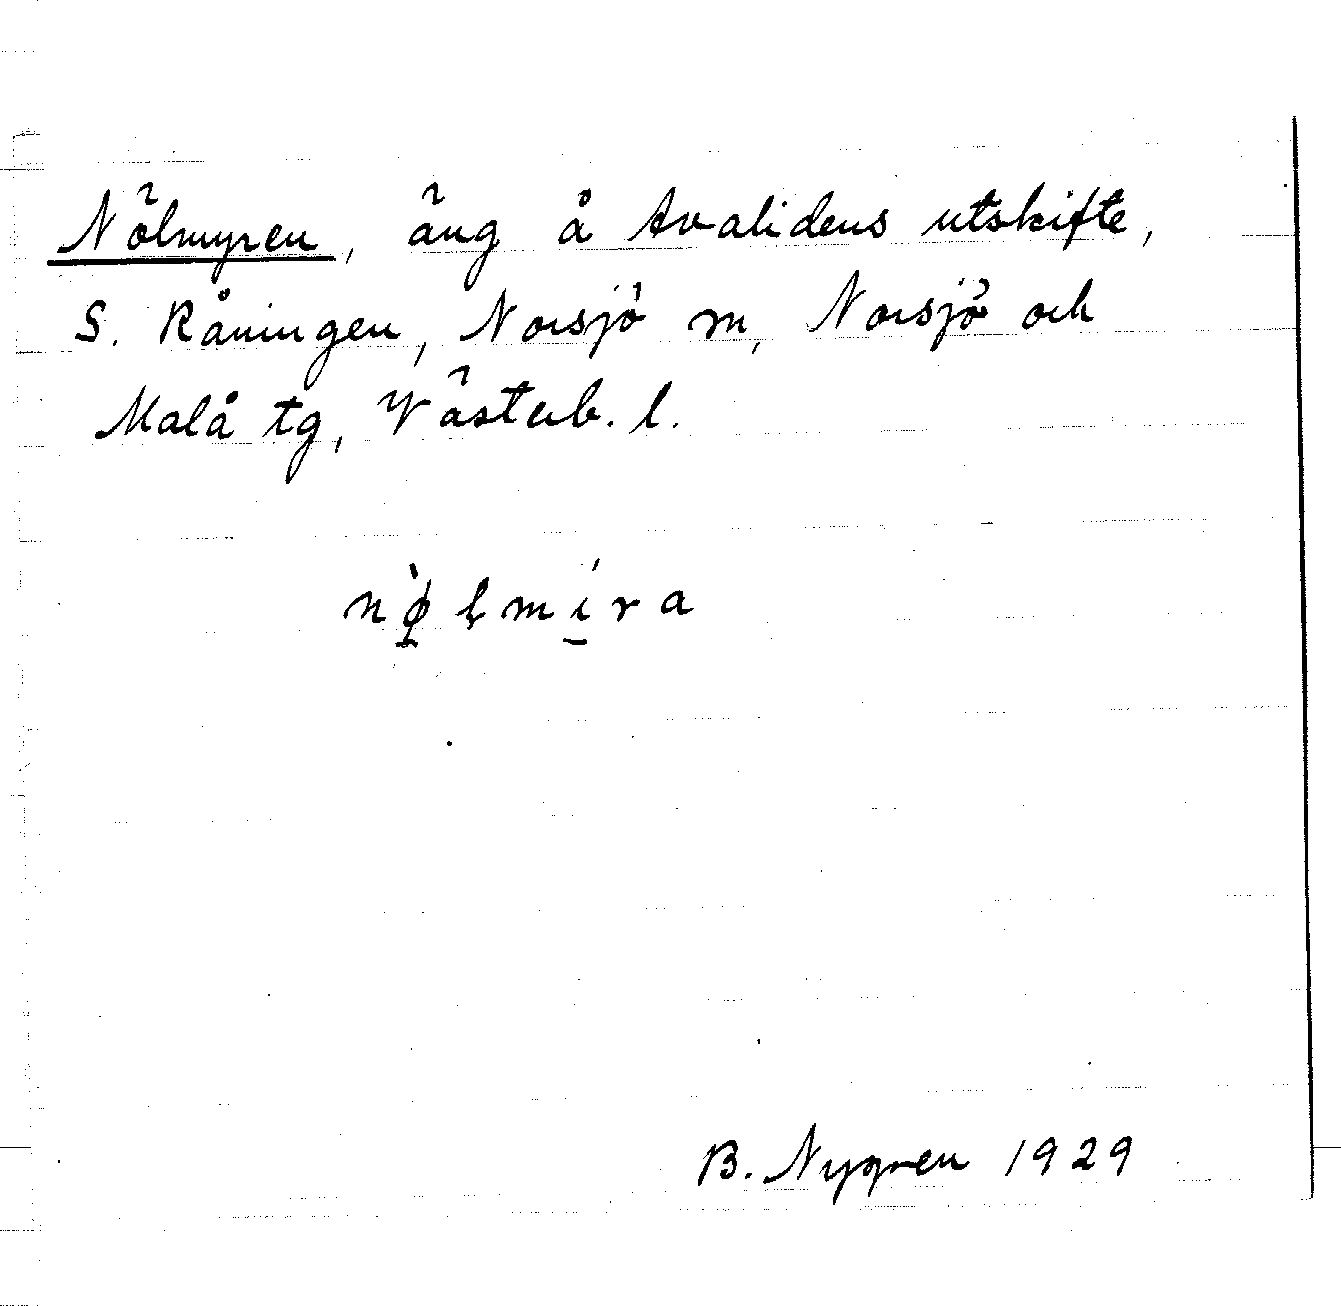 Nölmyren, äng å Avalidens utskifte,
S. Råningen, Norsjö m, Norsjö och
Malå tg, Västerb. l.
nø̀lmíra
B. Nygren 1929